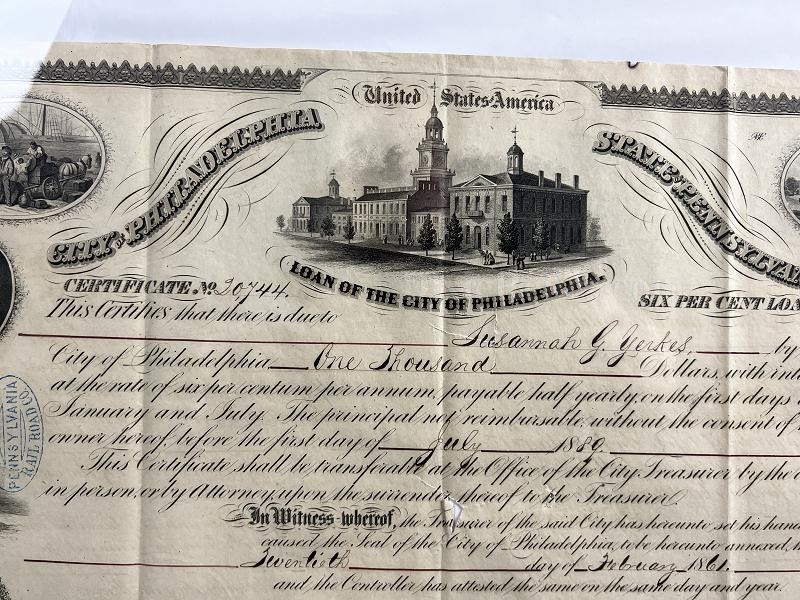 United States America
CITY OF PHILADELPHIA
STATE PENNSYLVA
LOAN OF THE CITY OF PHILADELPHIA.
CERTIFICATE No. 20744.
SIX PER CENT LOA
This Certifies that there is due to
Susannah G. Yerkes, by
City of Philadelphia One Thousand Dollars, with int
at the rate of six per centum per annum, payable half yearly, on the first days
January and July. The principal not reimbursable, without the consent of
owner hereof, before the first day of July 1889.
This Certificate shall be transferable at the Office of the City Treasurer by the
in person, or by Attorney, upon the surrender thereof to the Treasurer.
PENNSYLVANIA
RAIL ROAD CO.
In Witness whereof, the Treasurer of the said City has hereunto set his hand
caused the Seal of the City of Philadelphia, to be hereunto annexed,
Twentieth day of February 1861.
and the Controller has attested the same on the same day and year.